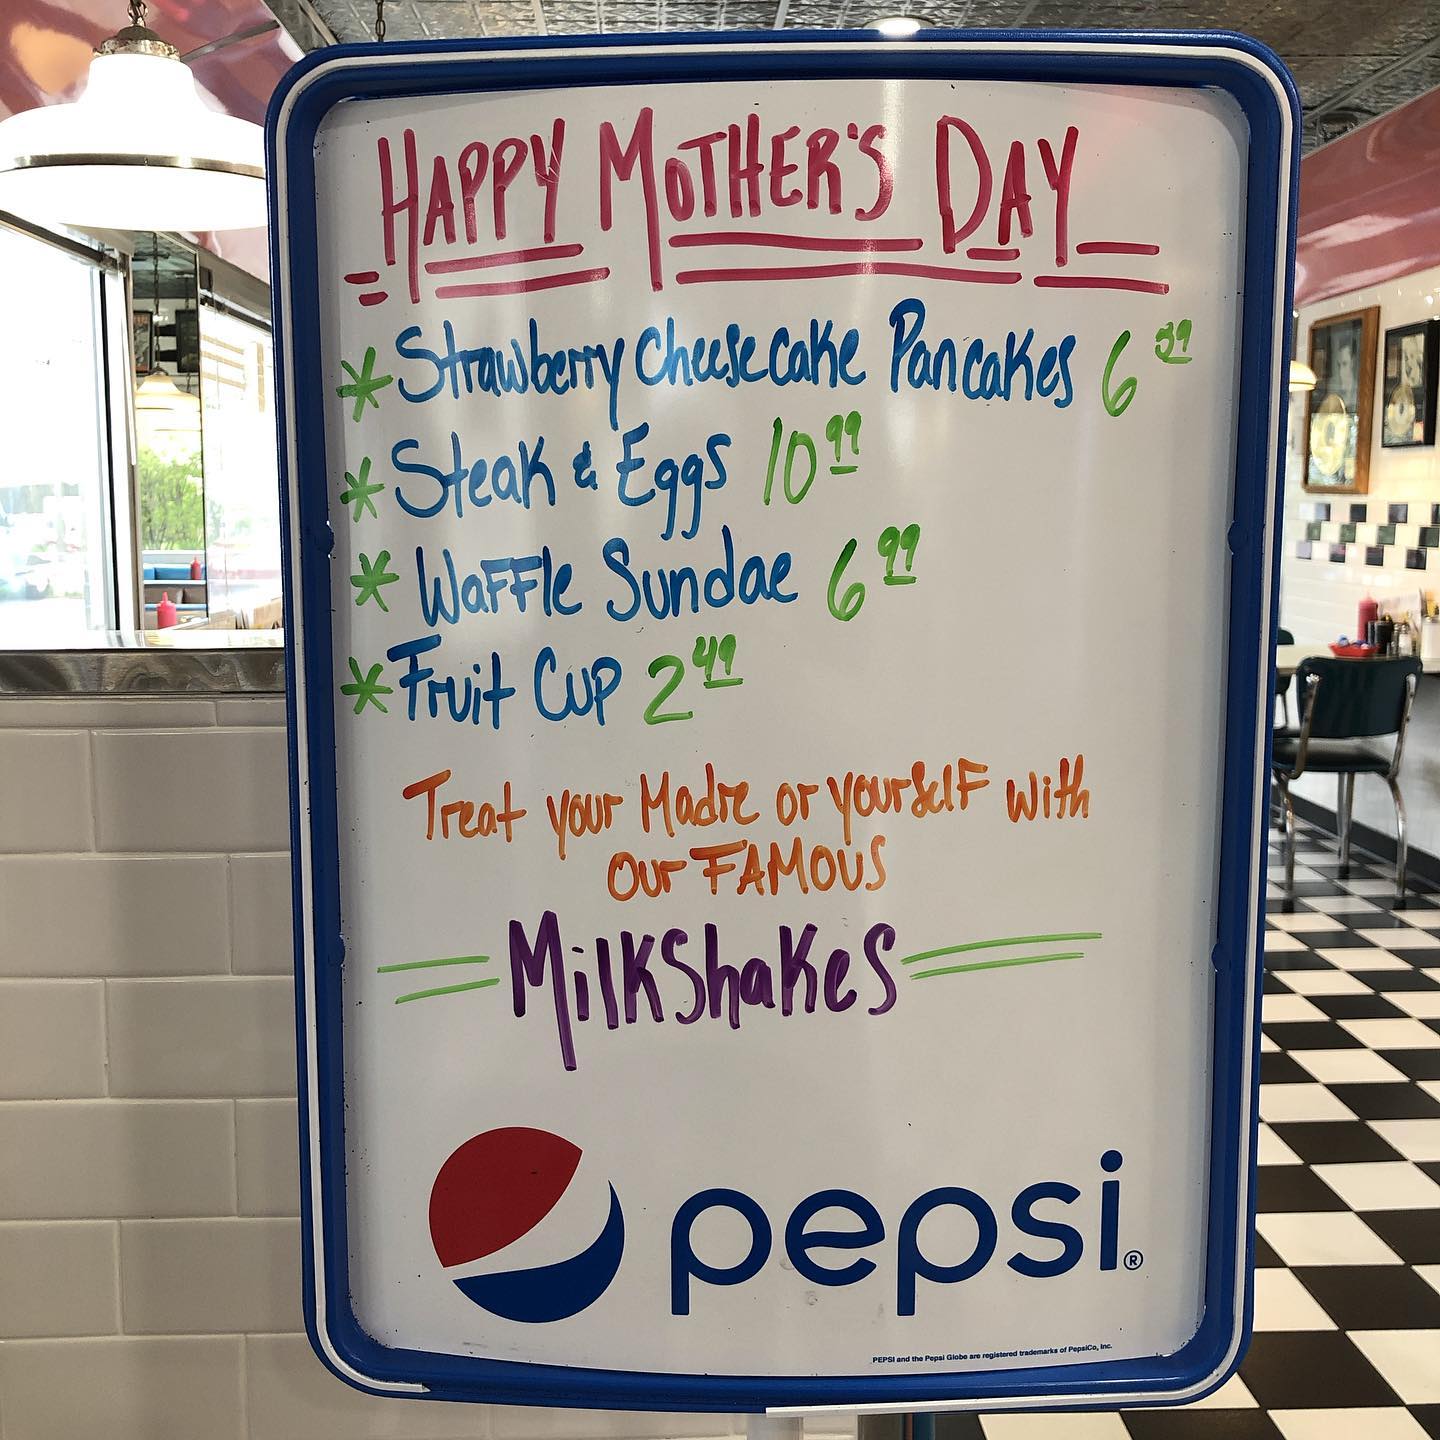 Happy Mother's Day
* Strawberry Cheesecake Pancakes 6 59
* Steak & Eggs 10 99
* Waffle Sundae 6 99
* Fruit Cup 2 49
Treat your Madre or yourself with
our FAMOUS
MilkShakes
pepsi®
PEPSI and the Pepsi Globe are registered trademarks of PepsiCo, Inc.